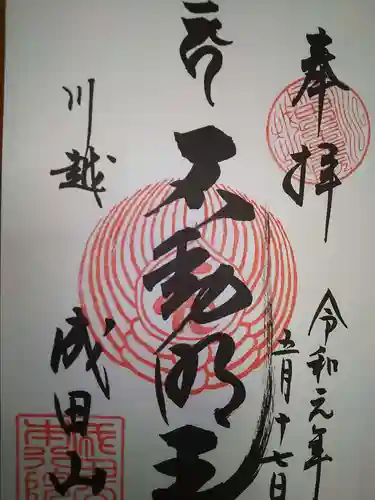 奉拝
令和元年
五月十七日
不動明王
川越
成田山